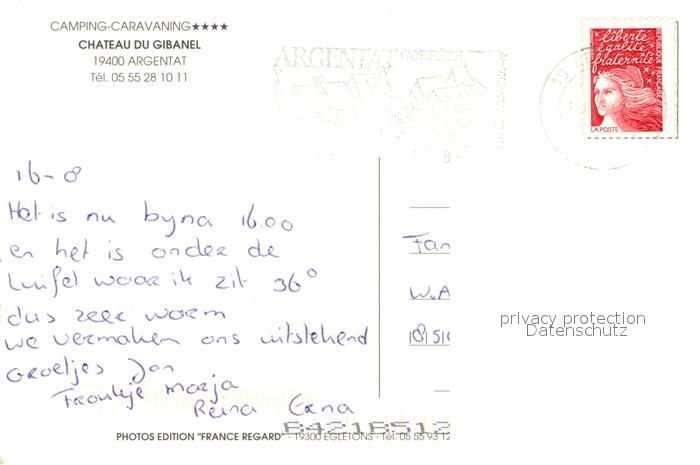 CAMPING-CARAVANING★★★★
CHATEAU DU GIBANEL
19400 ARGENTAT
Tél. 05 55 28 10 11
ARGENTAT CORREZE
liberté
égalité
fraternité
LA POSTE
16-8
Het is nu byna 16.00
en het is onder de
luifel waar ik zit 36°
dus zeer warm
we vermaken ons uitstekend
Groetjes Jan
Froukje Marja
Reina Erna
Fam
W.A
privacy protection
Datenschutz
84218512
PHOTOS EDITION "FRANCE REGARD" - 19300 EGLETONS - Tél. 05 55 93 12